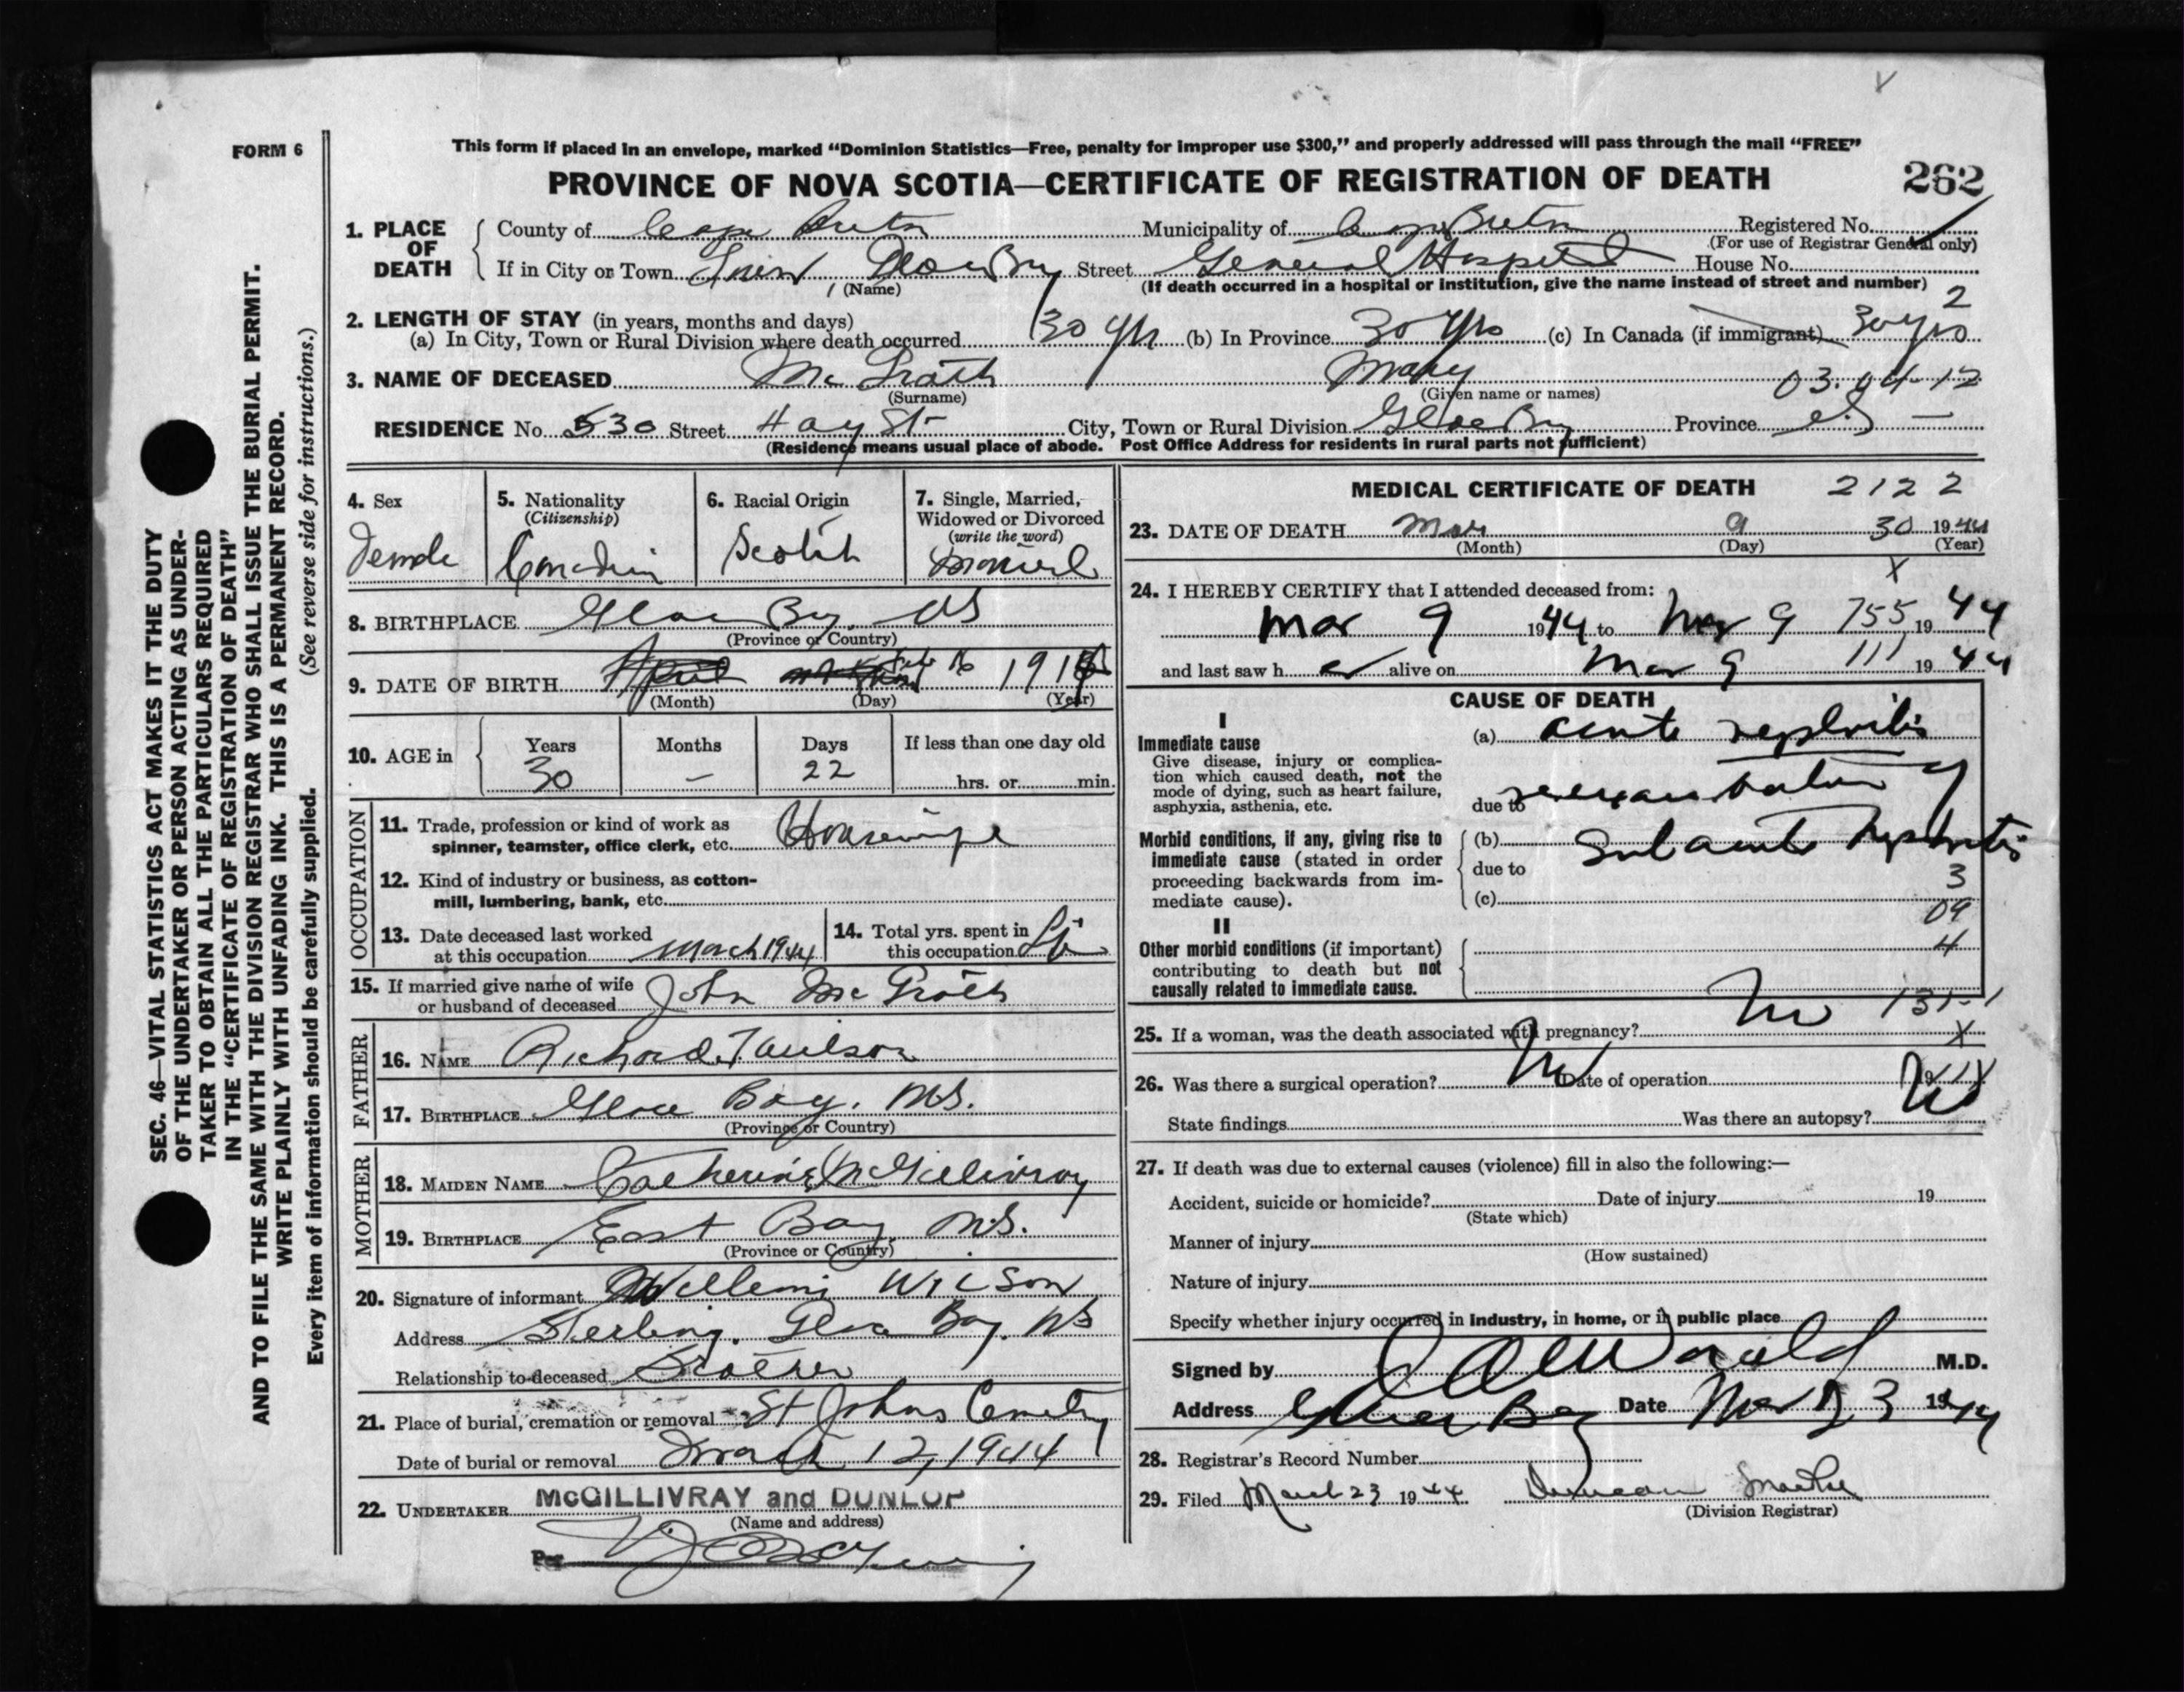 FORM 6
This form if placed in an envelope, marked “Dominion Statistics—Free, penalty for improper use $300,” and properly addressed will pass through the mail “FREE”
PROVINCE OF NOVA SCOTIA—CERTIFICATE OF REGISTRATION OF DEATH 262
1. PLACE OF DEATH
County of Cape Breton Municipality of Cape Breton Registered No.
(For use of Registrar General only)
If in City or Town Glace Bay Street General Hospital House No.
(Name) (If death occurred in a hospital or institution, give the name instead of street and number) 2
2. LENGTH OF STAY (in years, months and days)
(a) In City, Town or Rural Division where death occurred 30 yrs (b) In Province 30 yrs (c) In Canada (if immigrant) 30 yrs
3. NAME OF DECEASED Mc Grath Mary 03.04-12
(Surname) (Given name or names)
RESIDENCE No. 530 Street Hay St. City, Town or Rural Division Glace Bay Province NS
(Residence means usual place of abode. Post Office Address for residents in rural parts not sufficient)
4. Sex Female
5. Nationality (Citizenship) Canadian
6. Racial Origin Scotch
7. Single, Married, Widowed or Divorced (write the word) Married
8. BIRTHPLACE Glace Bay, NS
(Province or Country)
9. DATE OF BIRTH April 16 191
(Month) (Day) (Year)
10. AGE in Years 30 Months – Days 22 If less than one day old hrs. or min.
OCCUPATION
11. Trade, profession or kind of work as spinner, teamster, office clerk, etc. Housewife
12. Kind of industry or business, as cotton-mill, lumbering, bank, etc.
13. Date deceased last worked at this occupation March 1944
14. Total yrs. spent in this occupation
15. If married give name of wife or husband of deceased John Mc Grath
FATHER
16. NAME Richard
17. BIRTHPLACE Glace Bay. N.S.
(Province or Country)
MOTHER
18. MAIDEN NAME Catherine McGillivray
19. BIRTHPLACE East Bay N.S.
(Province or Country)
20. Signature of informant Wilson
Address Sterling. Glace Bay. NS
Relationship to deceased Brother
21. Place of burial, cremation or removal St Johns Cemetry
Date of burial or removal March 12, 1944
22. UNDERTAKER McGILLIVRAY and DUNLOP
(Name and address)
Per
MEDICAL CERTIFICATE OF DEATH 2122
23. DATE OF DEATH Mar 9 30 1944
(Month) (Day) (Year)
X
24. I HEREBY CERTIFY that I attended deceased from:
Mar 9 1944 to Mar 9 755 1944
and last saw her alive on Mar 9 111 1944
CAUSE OF DEATH
I
Immediate cause
Give disease, injury or complication which caused death, not the mode of dying, such as heart failure, asphyxia, asthenia, etc.
(a) acute nephritis
due to
Morbid conditions, if any, giving rise to immediate cause (stated in order proceeding backwards from immediate cause).
(b) Subacute Nephritis
due to 3
(c) 09
II
Other morbid conditions (if important) contributing to death but not causally related to immediate cause.
4
131-1
25. If a woman, was the death associated with pregnancy? No X
26. Was there a surgical operation? No Date of operation 19
State findings Was there an autopsy? No
27. If death was due to external causes (violence) fill in also the following:—
Accident, suicide or homicide? Date of injury 19
(State which)
Manner of injury
(How sustained)
Nature of injury
Specify whether injury occurred in industry, in home, or in public place
Signed by M.D.
Address Glace Bay Date Mar 1944
28. Registrar's Record Number
29. Filed March 23 1944 Duncan
(Division Registrar)
SEC. 46—VITAL STATISTICS ACT MAKES IT THE DUTY
OF THE UNDERTAKER OR PERSON ACTING AS UNDER-
TAKER TO OBTAIN ALL THE PARTICULARS REQUIRED
IN THE “CERTIFICATE OF REGISTRATION OF DEATH”
AND TO FILE THE SAME WITH THE DIVISION REGISTRAR WHO SHALL ISSUE THE BURIAL PERMIT.
WRITE PLAINLY WITH UNFADING INK. THIS IS A PERMANENT RECORD.
Every item of information should be carefully supplied. (See reverse side for instructions.)